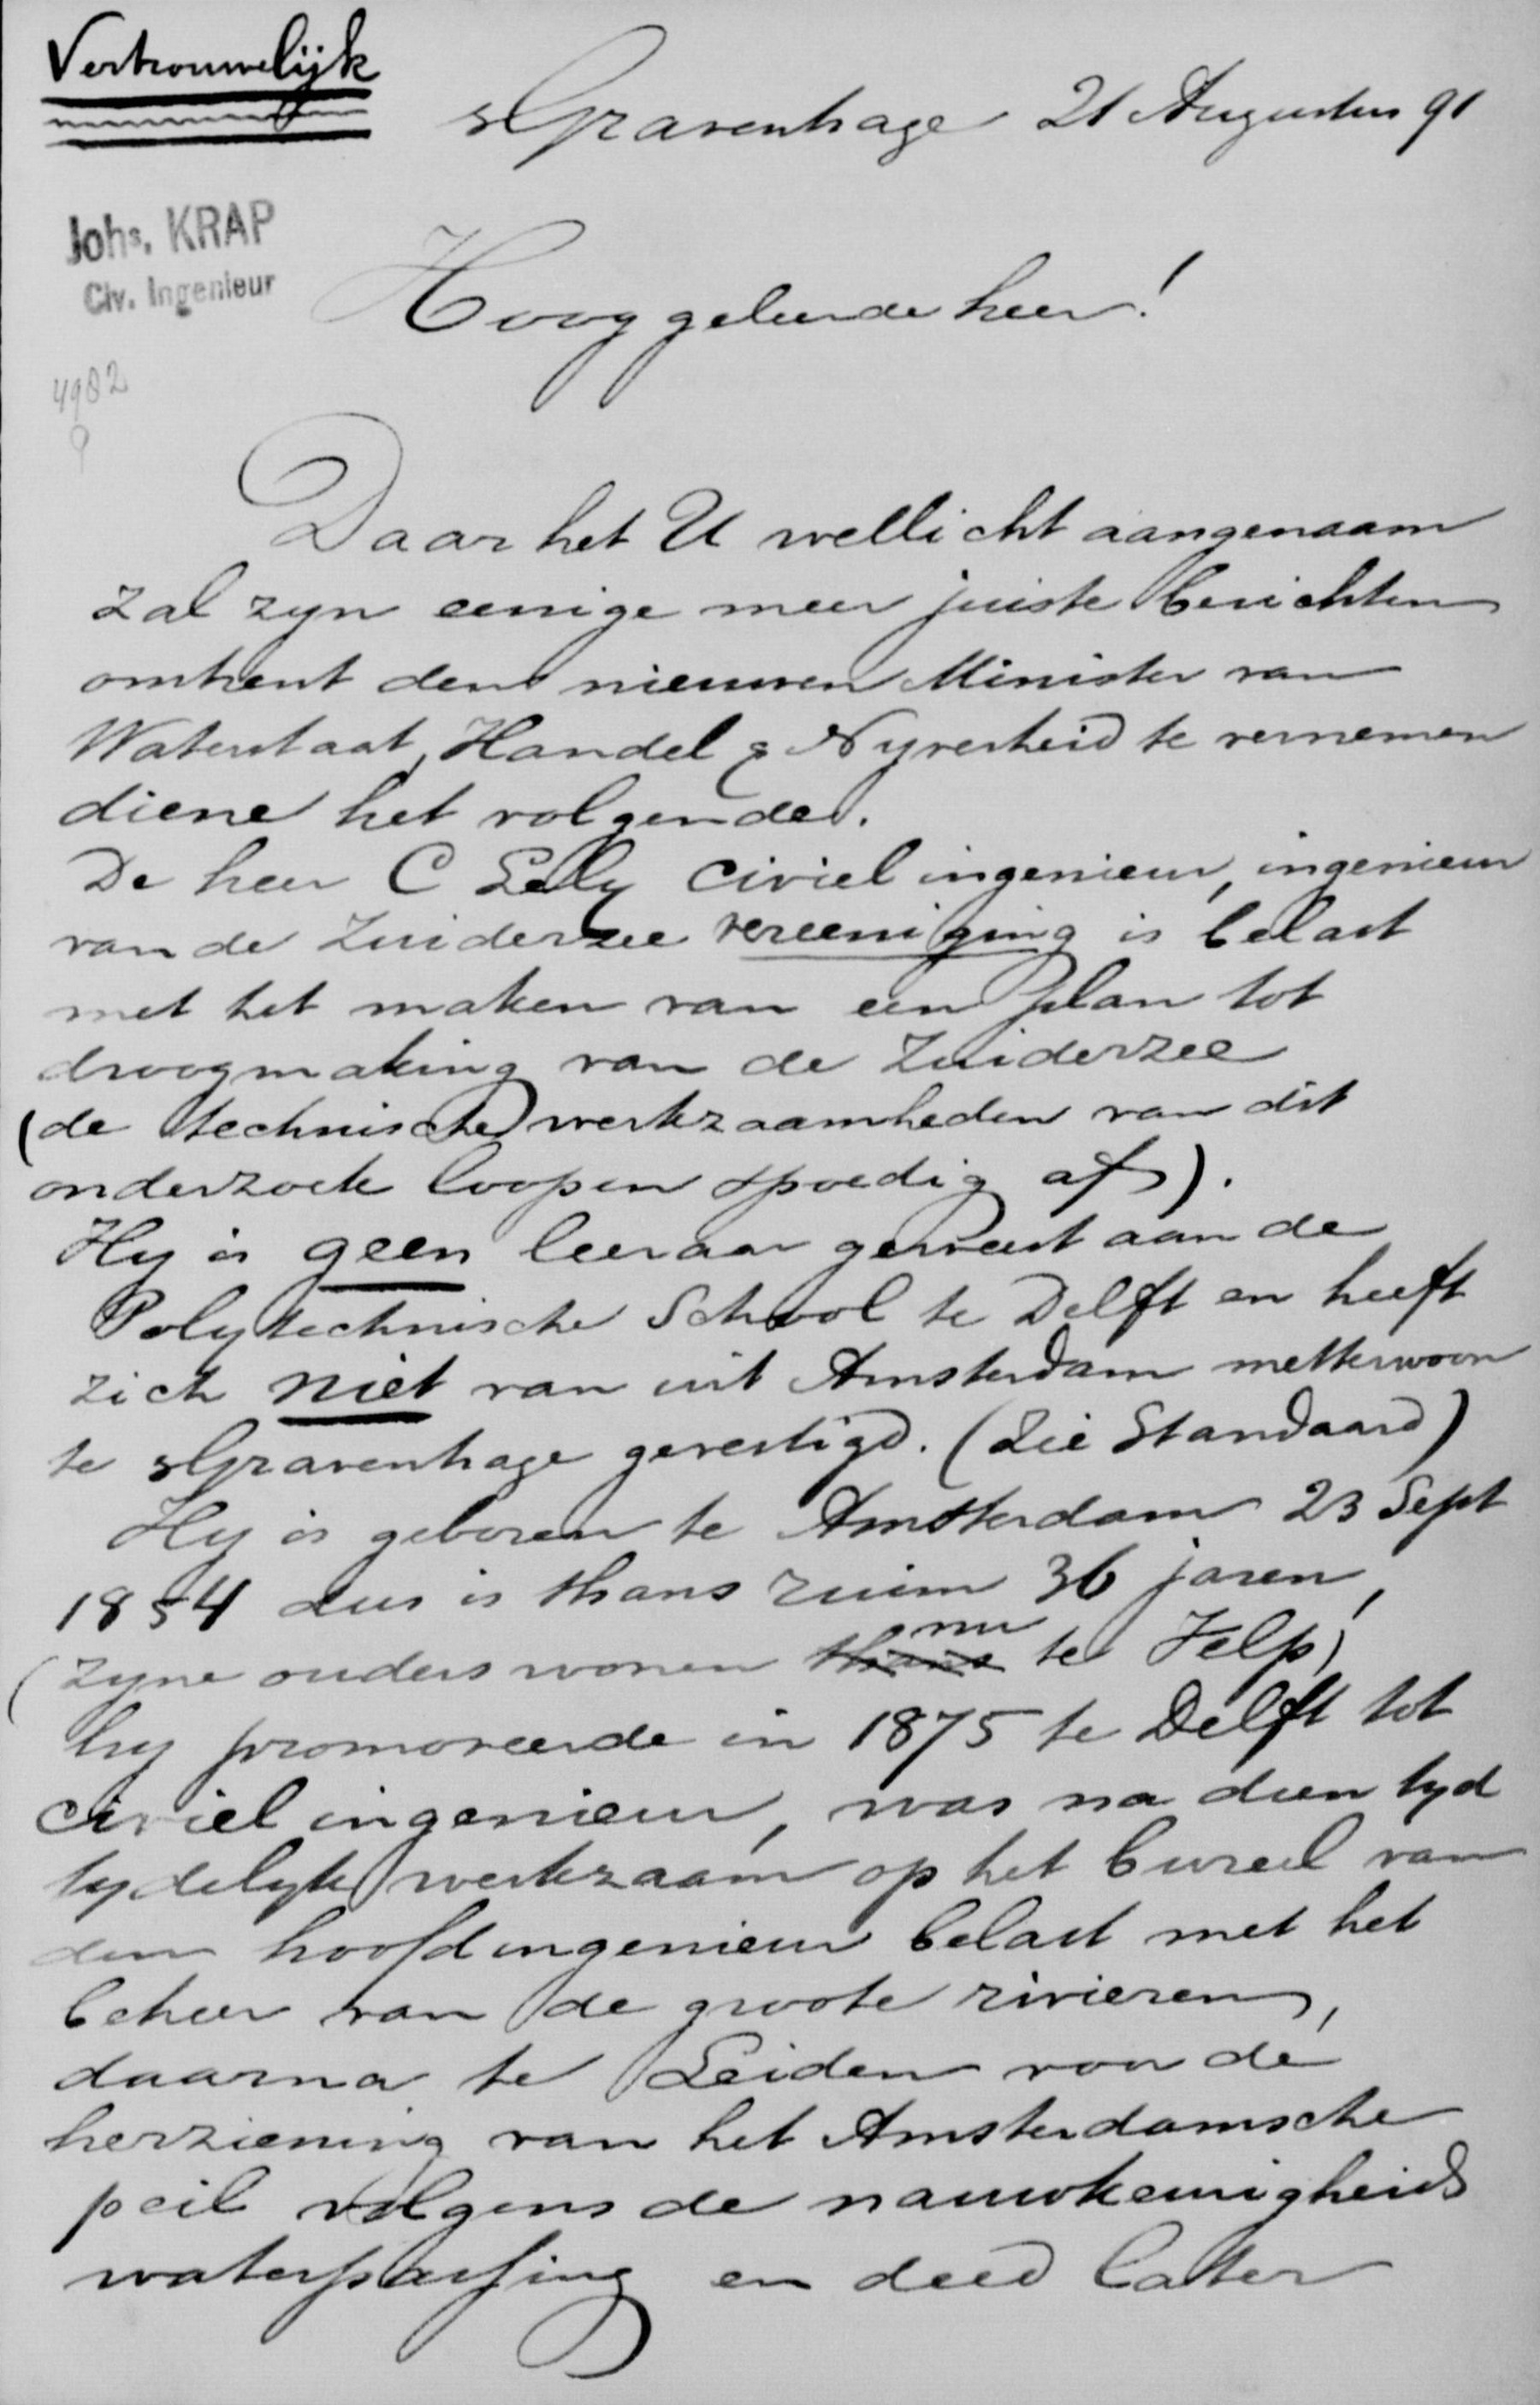 Vertrouwelijk
sGravenhage 21 Augustus 91
Johs. KRAP
Civ. Ingenieur
Hooggeleerde heer!
4982
Daar het U wellicht aangenaam
zal zyn eenige meer juiste berichten
omtrent den nieuwen Minister van
Waterstaat, Handel & Nyverheid te vernemen
diene het volgende.
De heer C Lely Civiel ingenieur, ingenieur
van de Zuiderzee vereeniging is belast
met het maken van een plan tot
droogmaking van de Zuiderzee
(de technische werkzaamheden van dit
onderzoek loopen spoedig af).
Hy is geen leeraar geweest aan de
Polytechnische School te Delft en heeft
zich niet van uit Amsterdam metterwoon
te sGravenhage gevestigd. (Zie Standaard)
Hy is geboren te Amsterdam 23 Sept
1854 dus is thans ruim 36 jaren,
(zyne ouders wonen thans nu te Velp)
hy promoveerde in 1875 te Delft tot
civiel ingenieur, was na dien tyd
tydelyk werkzaam op het bureel van
den hoofdingenieur belast met het
beheer van de groote rivieren,
daarna te Leiden voor de
herziening van het Amsterdamsche
peil volgens de nauwkeurigheids
waterpassing en deed later